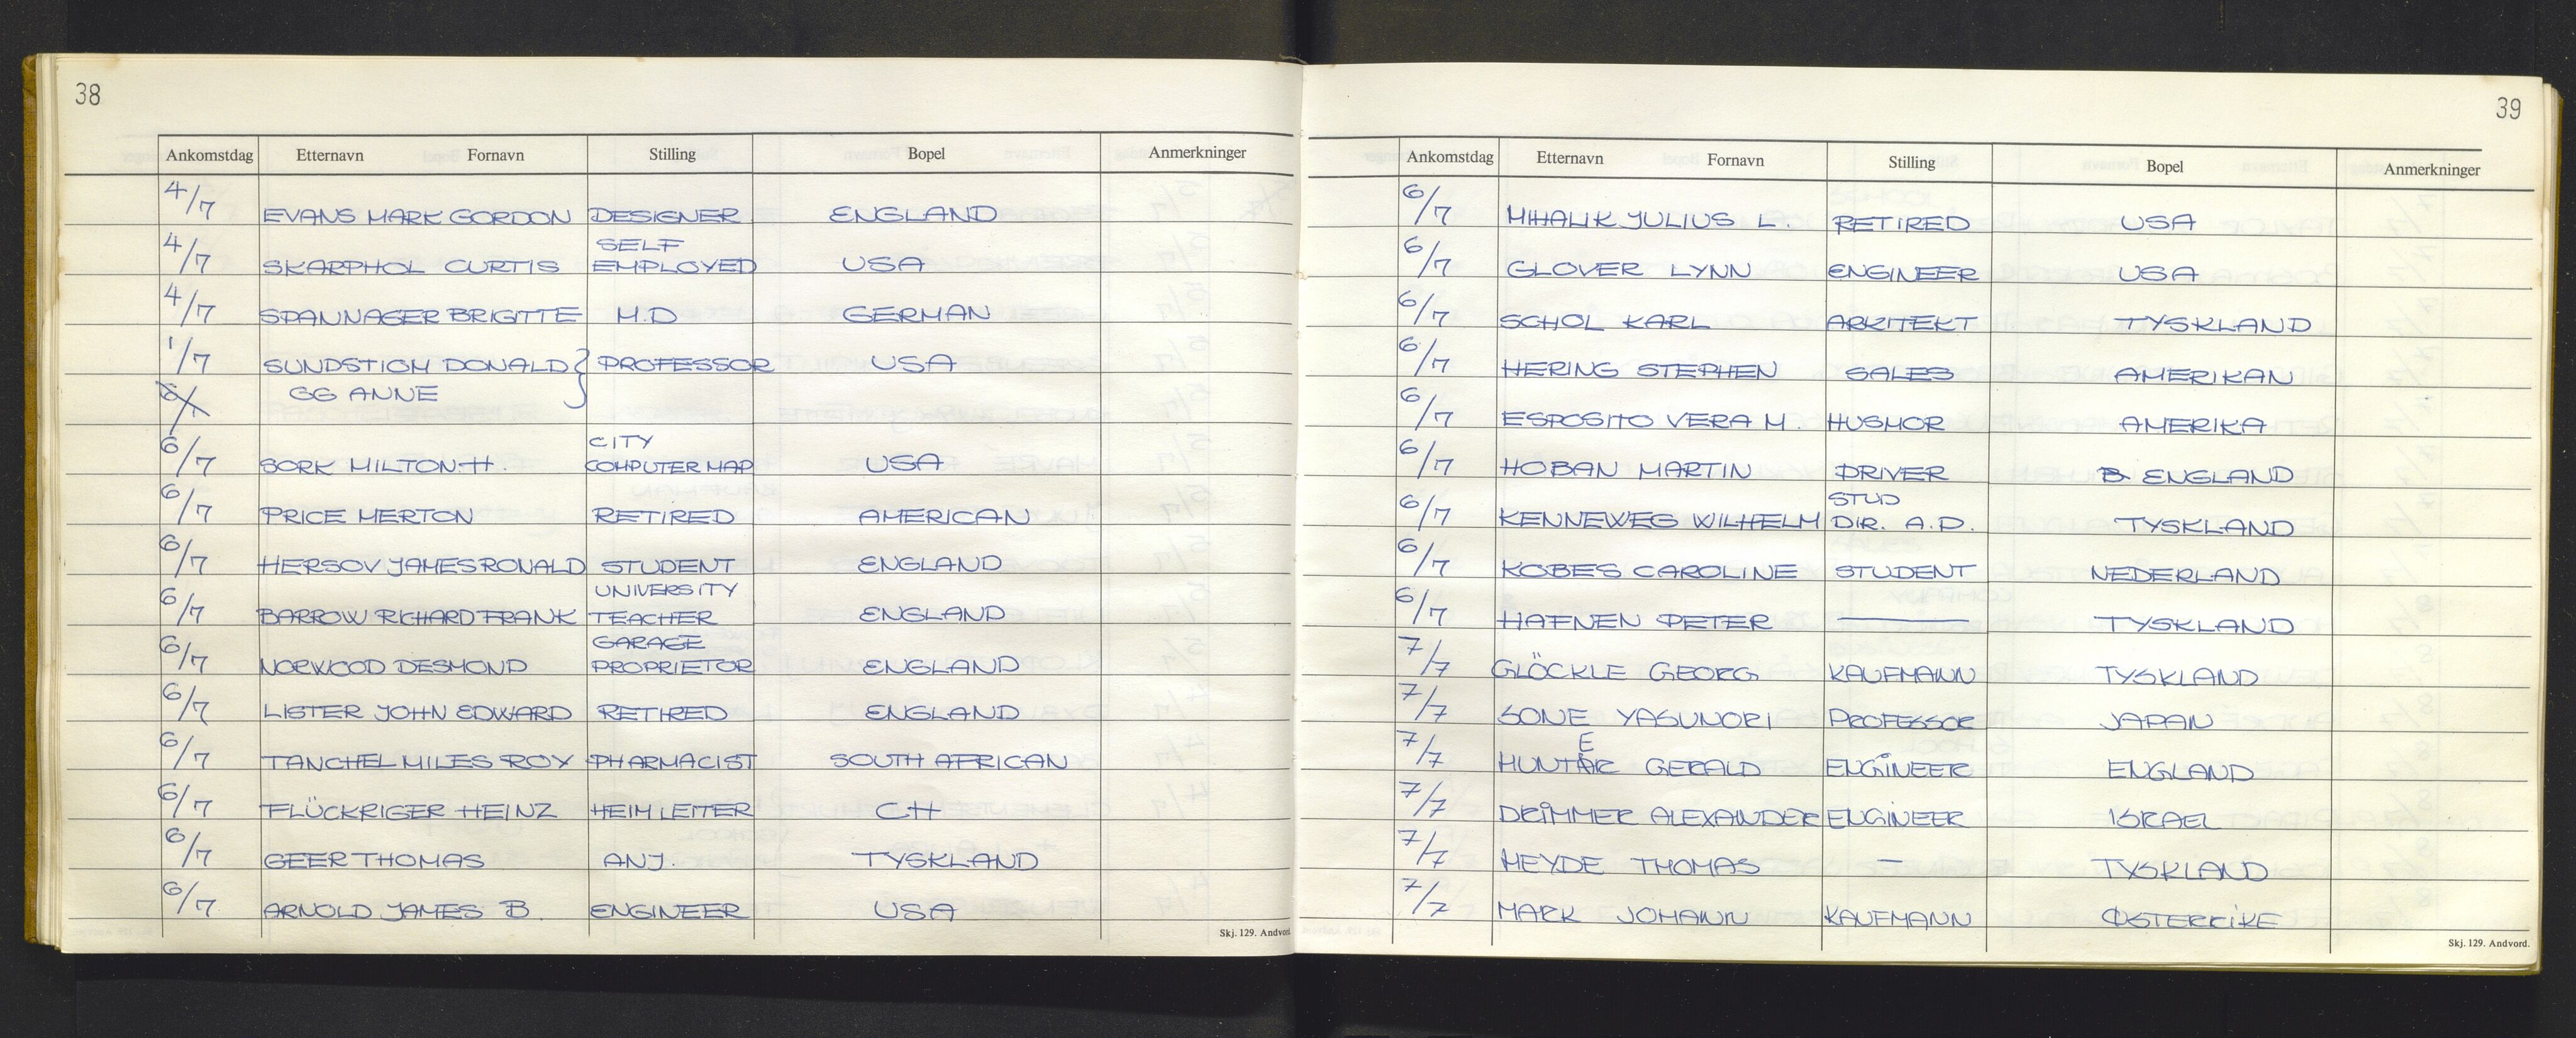 38
Ankomstdag Etternavn Fornavn Stilling Bopel Anmerkninger
4/7 EVANS MARK GORDON DESIGNER ENGLAND
4/7 SKARPHOL CURTIS SELF EMPLOYED USA
4/7 SPANNAGER BRIGITTE M.D GERMAN
1/7 SUNDSTIGM DONALD } PROFESSOR USA
GG ANNE
6/7 SORK MILTON.H. CITY COMPUTER MAP USA
6/7 PRICE MERTON RETIRED AMERICAN
6/7 HERSOV JAMES RONALD STUDENT ENGLAND
6/7 BARROW RICHARD FRANK UNIVERSITY TEACHER ENGLAND
6/7 NORWOOD DESMOND GARAGE PROPRIETOR ENGLAND
6/7 LISTER JOHN EDWARD RETIRED ENGLAND
6/7 TANCHEL MILES ROY PHARMACIST SOUTH AFRICAN
6/7 FLÜCKRIGER HEINZ HEIM LEITER CH
6/7 GEER THOMAS ANJ. TYSKLAND
6/7 ARNOLD JAMES B. ENGINEER USA
Skj. 129. Andvord.
39
Ankomstdag Etternavn Fornavn Stilling Bopel Anmerkninger
6/7 MIHALIK JULIUS L. RETIRED USA
6/7 GLOVER LYNN ENGINEER USA
6/7 SCHOL KARL ARKITEKT TYSKLAND
6/7 HERING STEPHEN SALES AMERIKAN
6/7 ESPOSITO VERA M. HUSMOR AMERIKA
6/7 HOBAN MARTIN DRIVER B ENGLAND
6/7 KENNEWEG WILHELM STUD DIR. A.D. TYSKLAND
6/7 KOBES CAROLINE STUDENT NEDERLAND
6/7 HAFNEN PETER — TYSKLAND
7/7 GLÖCKLE GEORG KAUFMANN TYSKLAND
7/7 SONE YASUNORI PROFESSOR JAPAN
7/7 HUNTER GERALD ENGINEER ENGLAND
7/7 DRIMMER ALEXANDER ENGINEER ISRAEL
7/7 HEYDE THOMAS — TYSKLAND
7/7 MARK JOHANN KAUFMANN ØSTERRIKE
Skj. 129. Andvord.